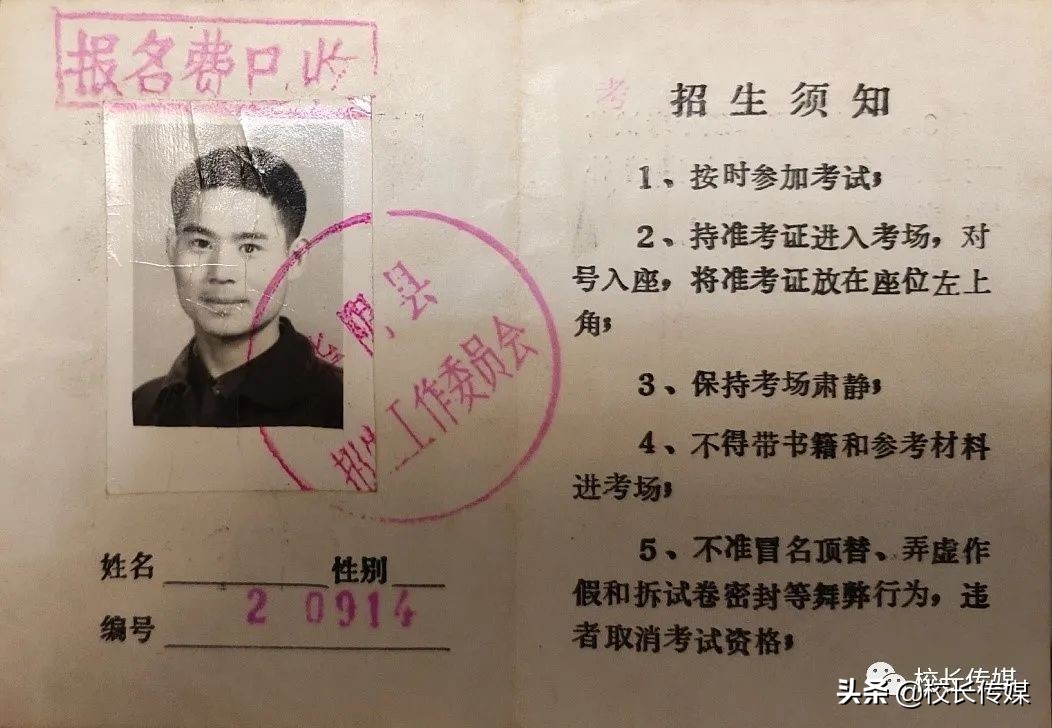 报名费已收
姓名 性别
2 0914
编号
县
招生工作委员会
考
招生须知
1、按时参加考试；
2、持准考证进入考场，对
号入座，将准考证放在座位左上
角；
3、保持考场肃静；
4、不得带书籍和参考材料
进考场；
5、不准冒名顶替、弄虚作
假和拆试卷密封等舞弊行为，违
者取消考试资格；
校长传媒
头条 @校长传媒